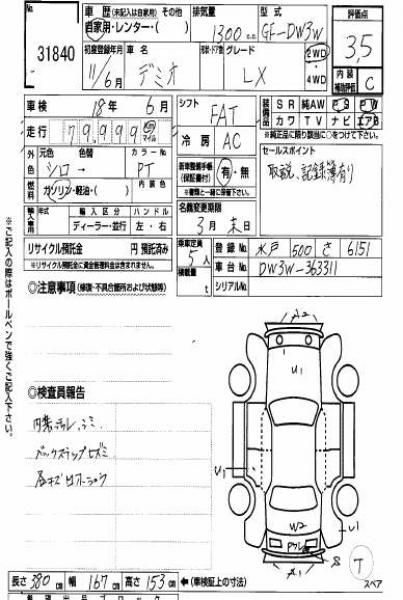 No.
31840
車歴 (未記入は自家用) その他
自家用・レンター・( )
排気量
1300 c.c.
型式
GF-DW3W
評価点
3.5
初度登録年月
11/6月
車名
デミオ
形状・ドア数
グレード
LX
2WD
・4WD
内装
補助評価
C
車検
18年 6月
シフト
FAT
装備品
SR 純AW PS PW
カワ TV ナビ エアB
※純正品に限り該当に○をつけて下さい。
走行
79,999 km マイル
冷房
AC
外色
元色 色替 カラーNo.
シロ → PT
セールスポイント
取説、記録簿有り
新車整備手帳
(保証書付)
有・無
※書類と一緒に保管下さい。
燃料
ガソリン・軽油・( )
内装色
輸入車
年式 輸入区分 ハンドル
ディーラー・並行 左・右
名義変更期限
3月末日
リサイクル預託金 円 預託済み
※リサイクル預託金に資金管理料金は含まれません。
乗車定員
5人
積載量
t
登録No.
水戸 500 さ 6151
車台No.
DW3W-363311
シリアルNo.
◎注意事項 (修復・不具合箇所および状態等)
※ご記入の際はボールペンで強くご記入下さい。
◎検査員報告
内装汚れ、シミ
バックステップヒズミ
A2
U1
U1
U1
W2
A1
T
スペア
長さ 380 cm 幅 167 cm 高さ 153 cm ←(車検証上の寸法)